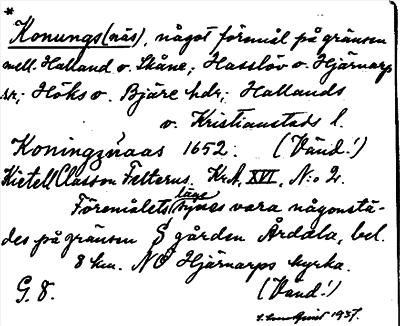 *
Konungs(näs), något föremål på gränsen
mell. Halland o. Skåne; Hasslöv o. Hjärnarp
sr; Höks o. Bjäre hdr; Hallands
o. Kristianstads l.
Koningznaas 1652. (Vänd!)
Kietell Classon Felterus. K.A. XVI, N:o 2.
Föremålets läge synes vara någonstä-
des på gränsen S gården Årdala, bel.
8 km. NO Hjärnarps kyrka.
G. 8. (Vänd!)
1937.